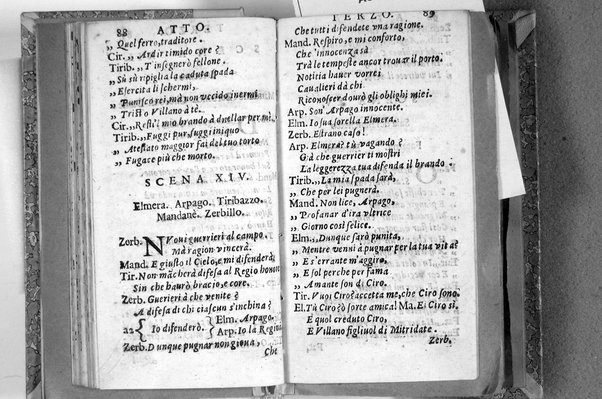 88 ATTO.
„ Quel ferro, traditore.
Cir. „ Ardir timido core?
Tirib. „ T'insegnerò fellone.
„ Sù sù ripiglia la caduta spada
„ Esercita li schermi,
„ Punisco rei, mà non uccido inermi
„ Tristo Villano à tè.
Cir. „ Resti'l mio brando à duellar per mi.
Tirib. „ Fuggi pur, fuggi iniquo
„ Atestato maggior fai del tuo torto
„ Fugace più che morto.
SCENA XIV.
Elmera. Arpago. Tiribazzo.
Mandane. Zerbillo.
Zerb. NVoui guerrieri al campo.
Mà ragion vincerà.
Mand. E giusto il Cielo, e mi difenderà;
Tir. Non mãcherà difesa al Regio honor
Sin che haurò braccio, e core.
Zerb. Guerieri à che venite?
A difesa di chi ciascun s'inchina?
a2 Io difenderò. Elm. Arpago.
Arp. Io la Regina
Zerb. Dunque pugnar non gioua,
Che
TERZO. 89
Che tutti difendete vna ragione.
Mand. Respiro, e mi conforto,
Che 'innocenza sà
Trà le tempeste ancor trouar il porto.
Notitia hauer vorrei
Caualieri dà chi
Riconoscer dourò gli oblighi miei.
Arp. Son' Arpago innocente.
Elm. Io sua sorella Elmera.
Zerb. Estrano caso!
Arp. Elmera? tù vagando?
Già che guerrier ti mostri
La leggerezza tua difenda il brando
Tirib. „ La mia spada sarà,
„ Che per lei pugnerà.
Mand. Non lice, Arpago,
„ Profanar d'ira vltrice
„ Giorno così felice.
Elm. „ Dunque sarò punita,
„ Mentre venni à pugnar per la tua vita?
„ E s'errante m'aggiro,
„ E sol perche per fama
„ Amante son di Ciro.
Tir. Vuoi Ciro? accetta me, che Ciro sono.
El. Tù Ciro? ò sorte amica! Ma. E Ciro si,
E quol creduto Ciro,
E Villano figliuol di Mitridate.
Zerb.